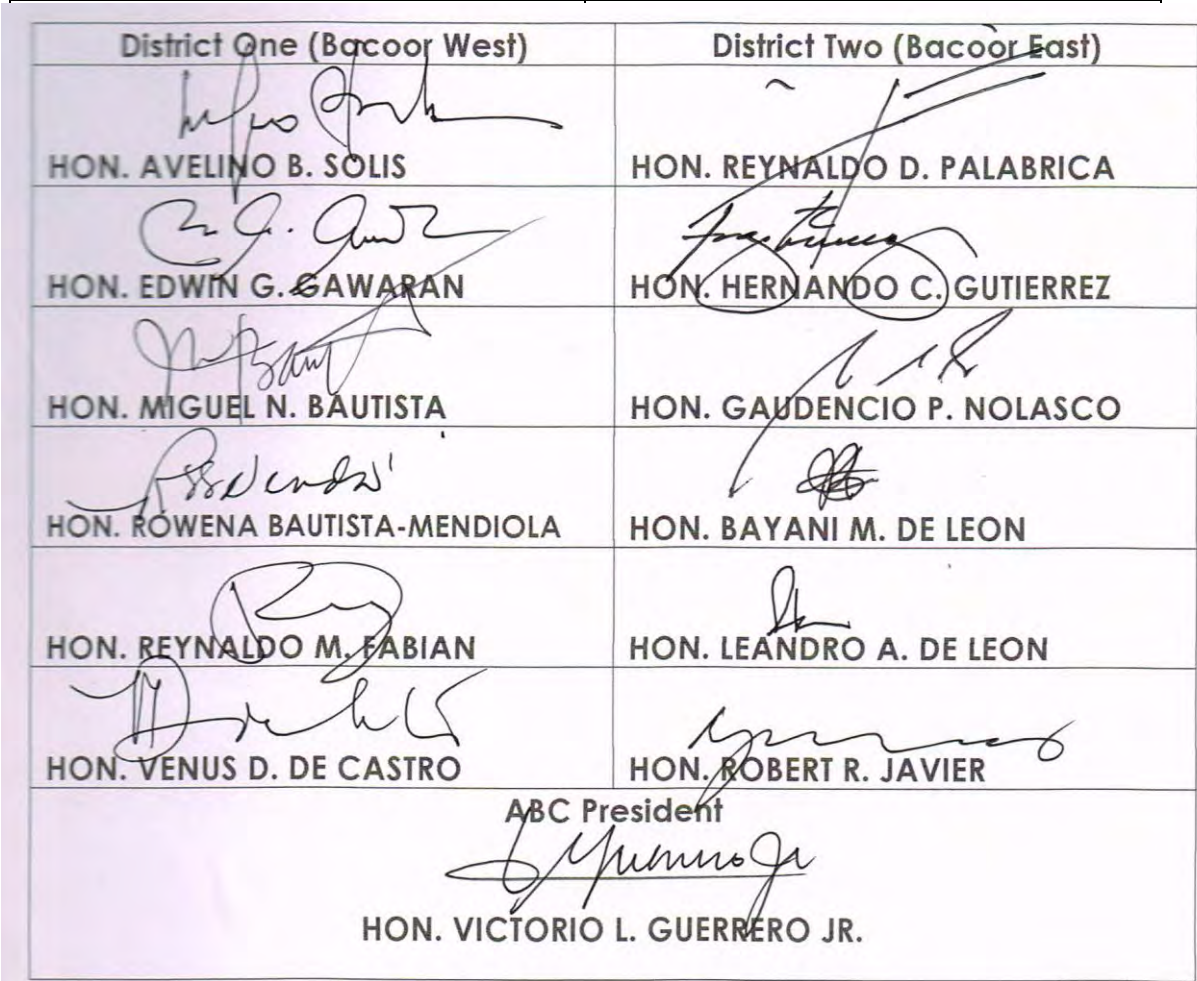 District One (Bacoor West) District Two (Bacoor East)
HON. AVELINO B. SOLIS HON. REYNALDO D. PALABRICA
HON. EDWIN G. GAWARAN HON. HERNANDO C. GUTIERREZ
HON. MIGUEL N. BAUTISTA HON. GAUDENCIO P. NOLASCO
HON. ROWENA BAUTISTA-MENDIOLA HON. BAYANI M. DE LEON
HON. REYNALDO M. FABIAN HON. LEANDRO A. DE LEON
HON. VENUS D. DE CASTRO HON. ROBERT R. JAVIER
ABC President
HON. VICTORIO L. GUERRERO JR.